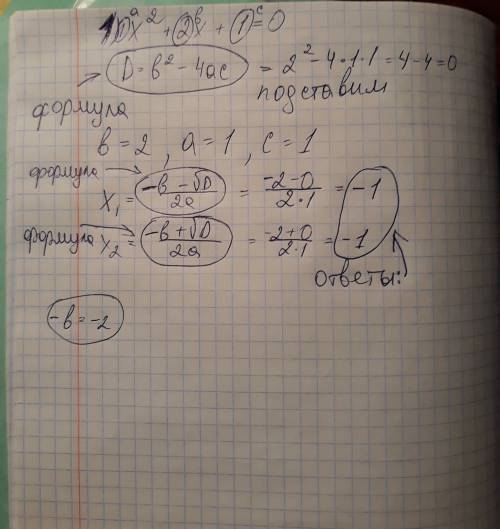 1x² + 2x + 1 = 0
a в c
D = в² - 4ac = 2² - 4·1·1 = 4 - 4 = 0
формула подставим
в = 2, a = 1, c = 1
формула
x₁ = (-в - √D)/2a = (-2-0)/2·1 = -1
формула x₂ = (-в + √D)/2a = (-2+0)/2·1 = -1
ответы:
-в = -2